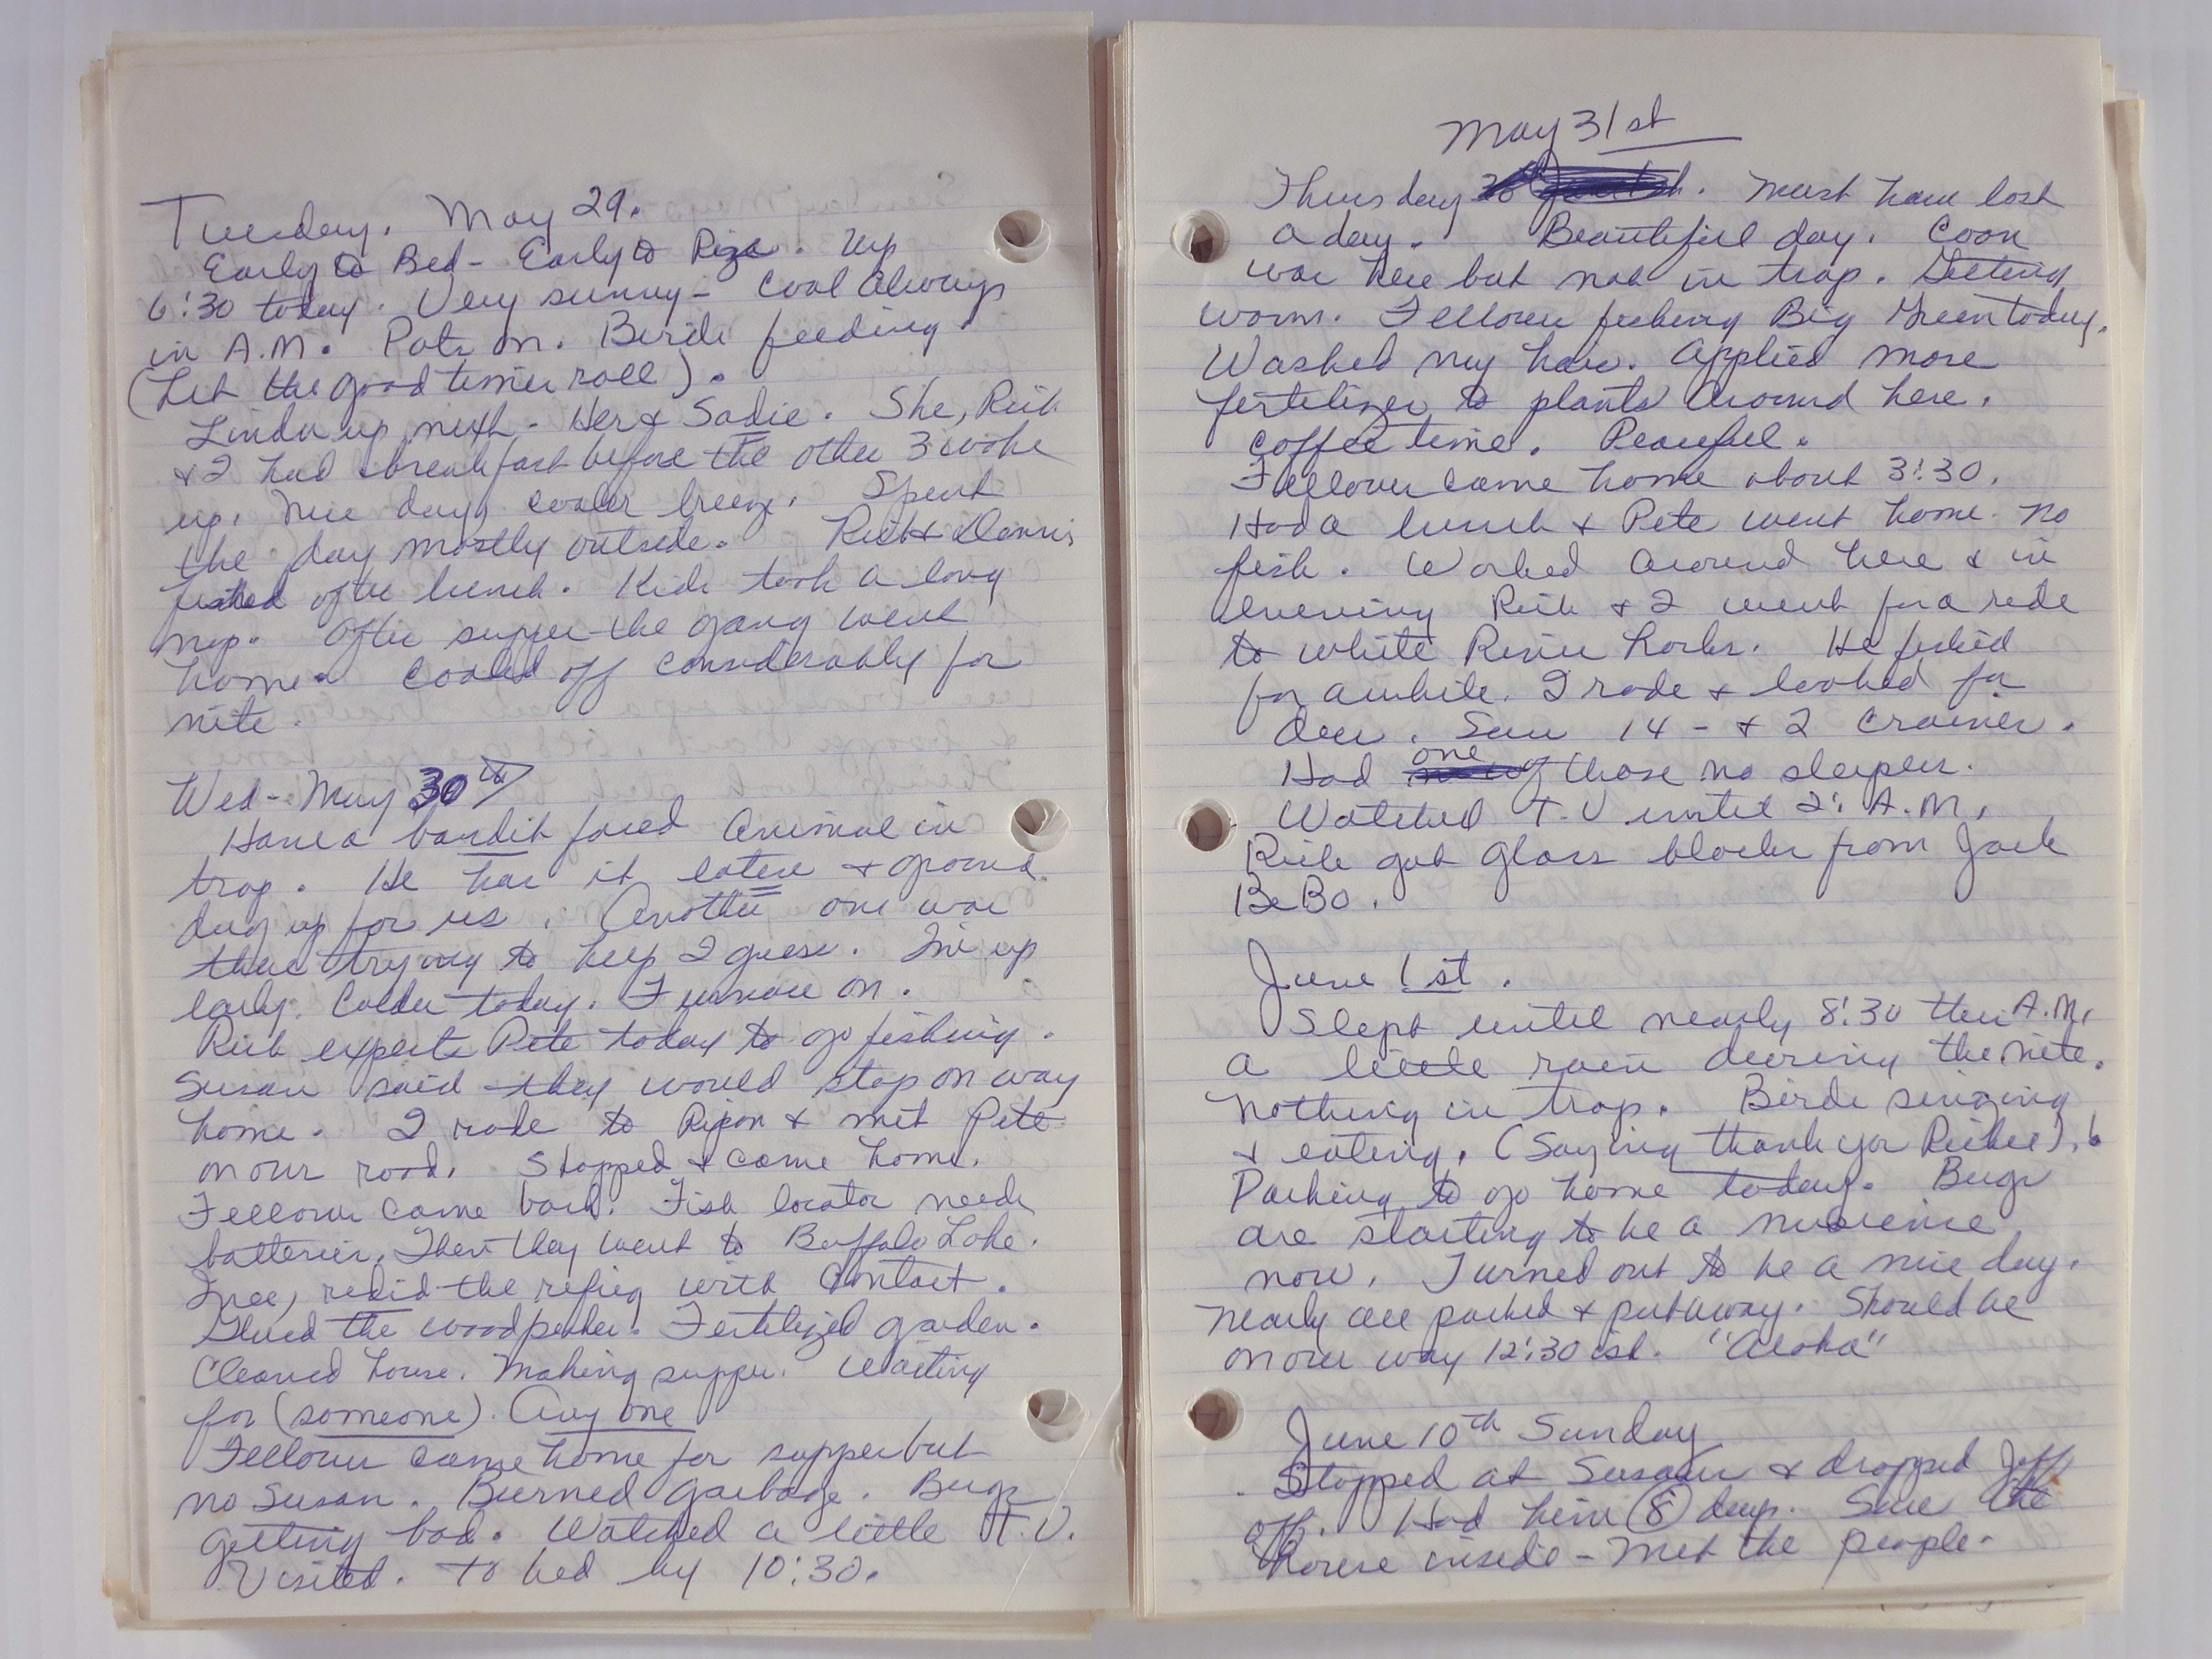 Tuesday. May 29.
Early to Bed - Early to Rize. Up
6:30 today. Very sunny - cool always
in A.M. Pots on. Birds feeding.
(Let the good times roll).
Linda up next - Her & Sadie. She, Rich
& I had breakfast before the other 3 woke
up. Nice day, cooler breeze. Spent
the day mostly outside. Rich & Dennis
fished after lunch. Kids took a long
nap. After supper the gang went
home. Cooled off considerably for
nite.
Wed - May 30th
Have a bandit faced animal in
trap. He has it eaten & ground
dug up for us. Another one was
there trying to help I guess. I'm up
early. Colder today. Furnace on.
Rich expects Pete today to go fishing.
Susan said they would stop on way
home. I rode to Ripon & met Pete
on our road. Stopped & came home.
Fellows came back. Fish locator needs
batteries. Then they went to Buffalo Lake.
I redid the refrig with Contact.
Glued the woodpecker. Fertilized garden.
Cleaned house. Making supper. Waiting
for (someone). Any one
Fellows came home for supper but
no Susan. Burned garbage. Bugs
getting bad. Watched a little T.V.
Visited. To bed by 10:30.
May 31st
Thursday. Must have lost
a day. Beautiful day. Coon
was here but not in trap. Getting
warm. Fellows fishing Big Green today.
Washed my hair. Applied more
fertilizer to plants around here.
Coffee time. Peaceful.
Fellows came home about 3:30.
Had a lunch & Pete went home. No
fish. Worked around here & in
evening Rich & I went for a ride
to White River Locks. He fished
for awhile. I rode & looked for
deer. Saw 14 - & 2 cranes.
Had one of those no sleepers.
Watched T.V until 2: A.M.
Rich got glass blocks from Jack
BeBo.
June 1st.
Slept until nearly 8:30 this A.M.
a little rain during the nite.
Nothing in trap. Birds singing
& eating. (Saying thank you Richie).
Packing to go home today. Bugs
are starting to be a nuisence
now. Turned out to be a nice day.
Nearly all packed & put away. Should be
on our way 12:30 ish. "Aloha"
June 10th Sunday
Stopped at Susans & dropped Jeff
off. Had him 8 days. Saw the
house inside - Met the people.